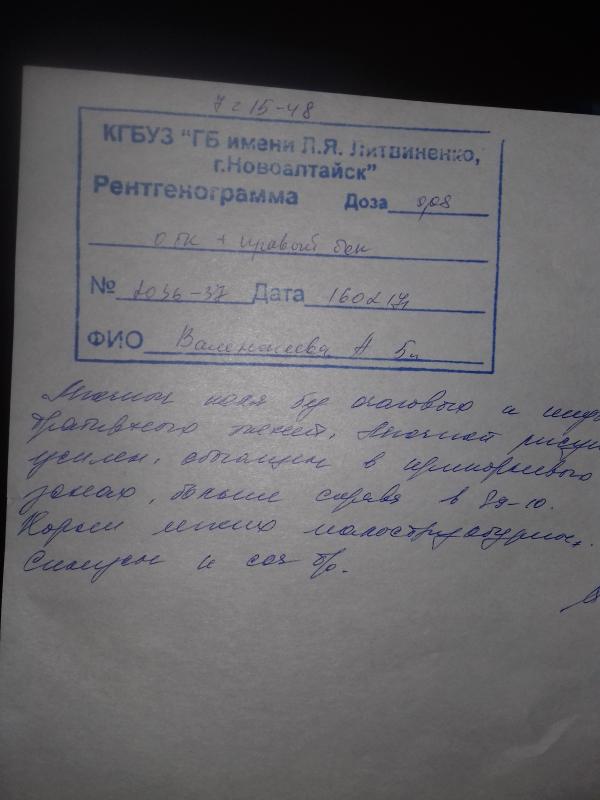 7 с 15-48
КГБУЗ "ГБ имени Л.Я. Литвиненко,
г.Новоалтайск"
Рентгенограмма Доза 0,08
ОГК + правый бок
№ 2036-37 Дата
ФИО А 5л
Легочные поля без очаговых и
теней. Легочной
усилен, обогащен в прикорневого
зонах, больше справа в S9-10.
Корни легких малоструктурны.
Синусы и б/о.